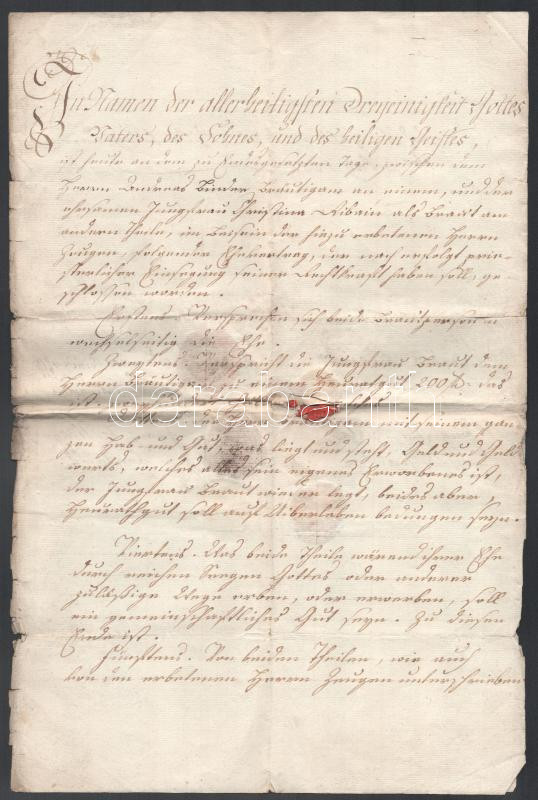 In Namen der allerheiligsten Dreyeinigkeit Gottes
Vaters, des Sohnes, und des heiligen Geistes,
ist heute an dem zu Endegesetzten Tage, zwischen dem
Herrn Andreas Binder, Bräutigam an einem, und der
ehrsamen Jungfrau Christina als Braut am
andern Theile, im Beisein der hinzu erbetenen Herrn
Zeugen, folgender Ehevertrag, der nach erfolgt prie-
sterlicher Einsegnung seiner Rechtskraft haben soll, ge-
schlossen worden.
Erstens Versprechen sich beide Brautpersonen
wechselseitig die Ehe.
Zweytens. Verspricht die Jungfrau Braut dem
Herrn Bräutigam zu einem Heiratgut 200 f. das
ist
der Herr Bräutigam mit seinem gan-
zen Hab und Gut, was liegt und steht, Geld und Geld
werth, welches alles sein eigenes Erworbenes ist,
der Jungfrau Braut widerlegt, beides aber,
Heurathgut soll auf Uiberleben bedungen seyn.
Viertens. Was beide Theile während ihrer Ehe
durch reichen Seegen Gottes oder anderer
zuläßige Wege erben, oder erwerben, soll
ein gemeinschaftliches Gut seyn. Zu diesen
Ende ist.
Fünftens. Von beiden Theilen, wie auch
von den erbetenen Herrn Zeugen unterschrieben
darabanth